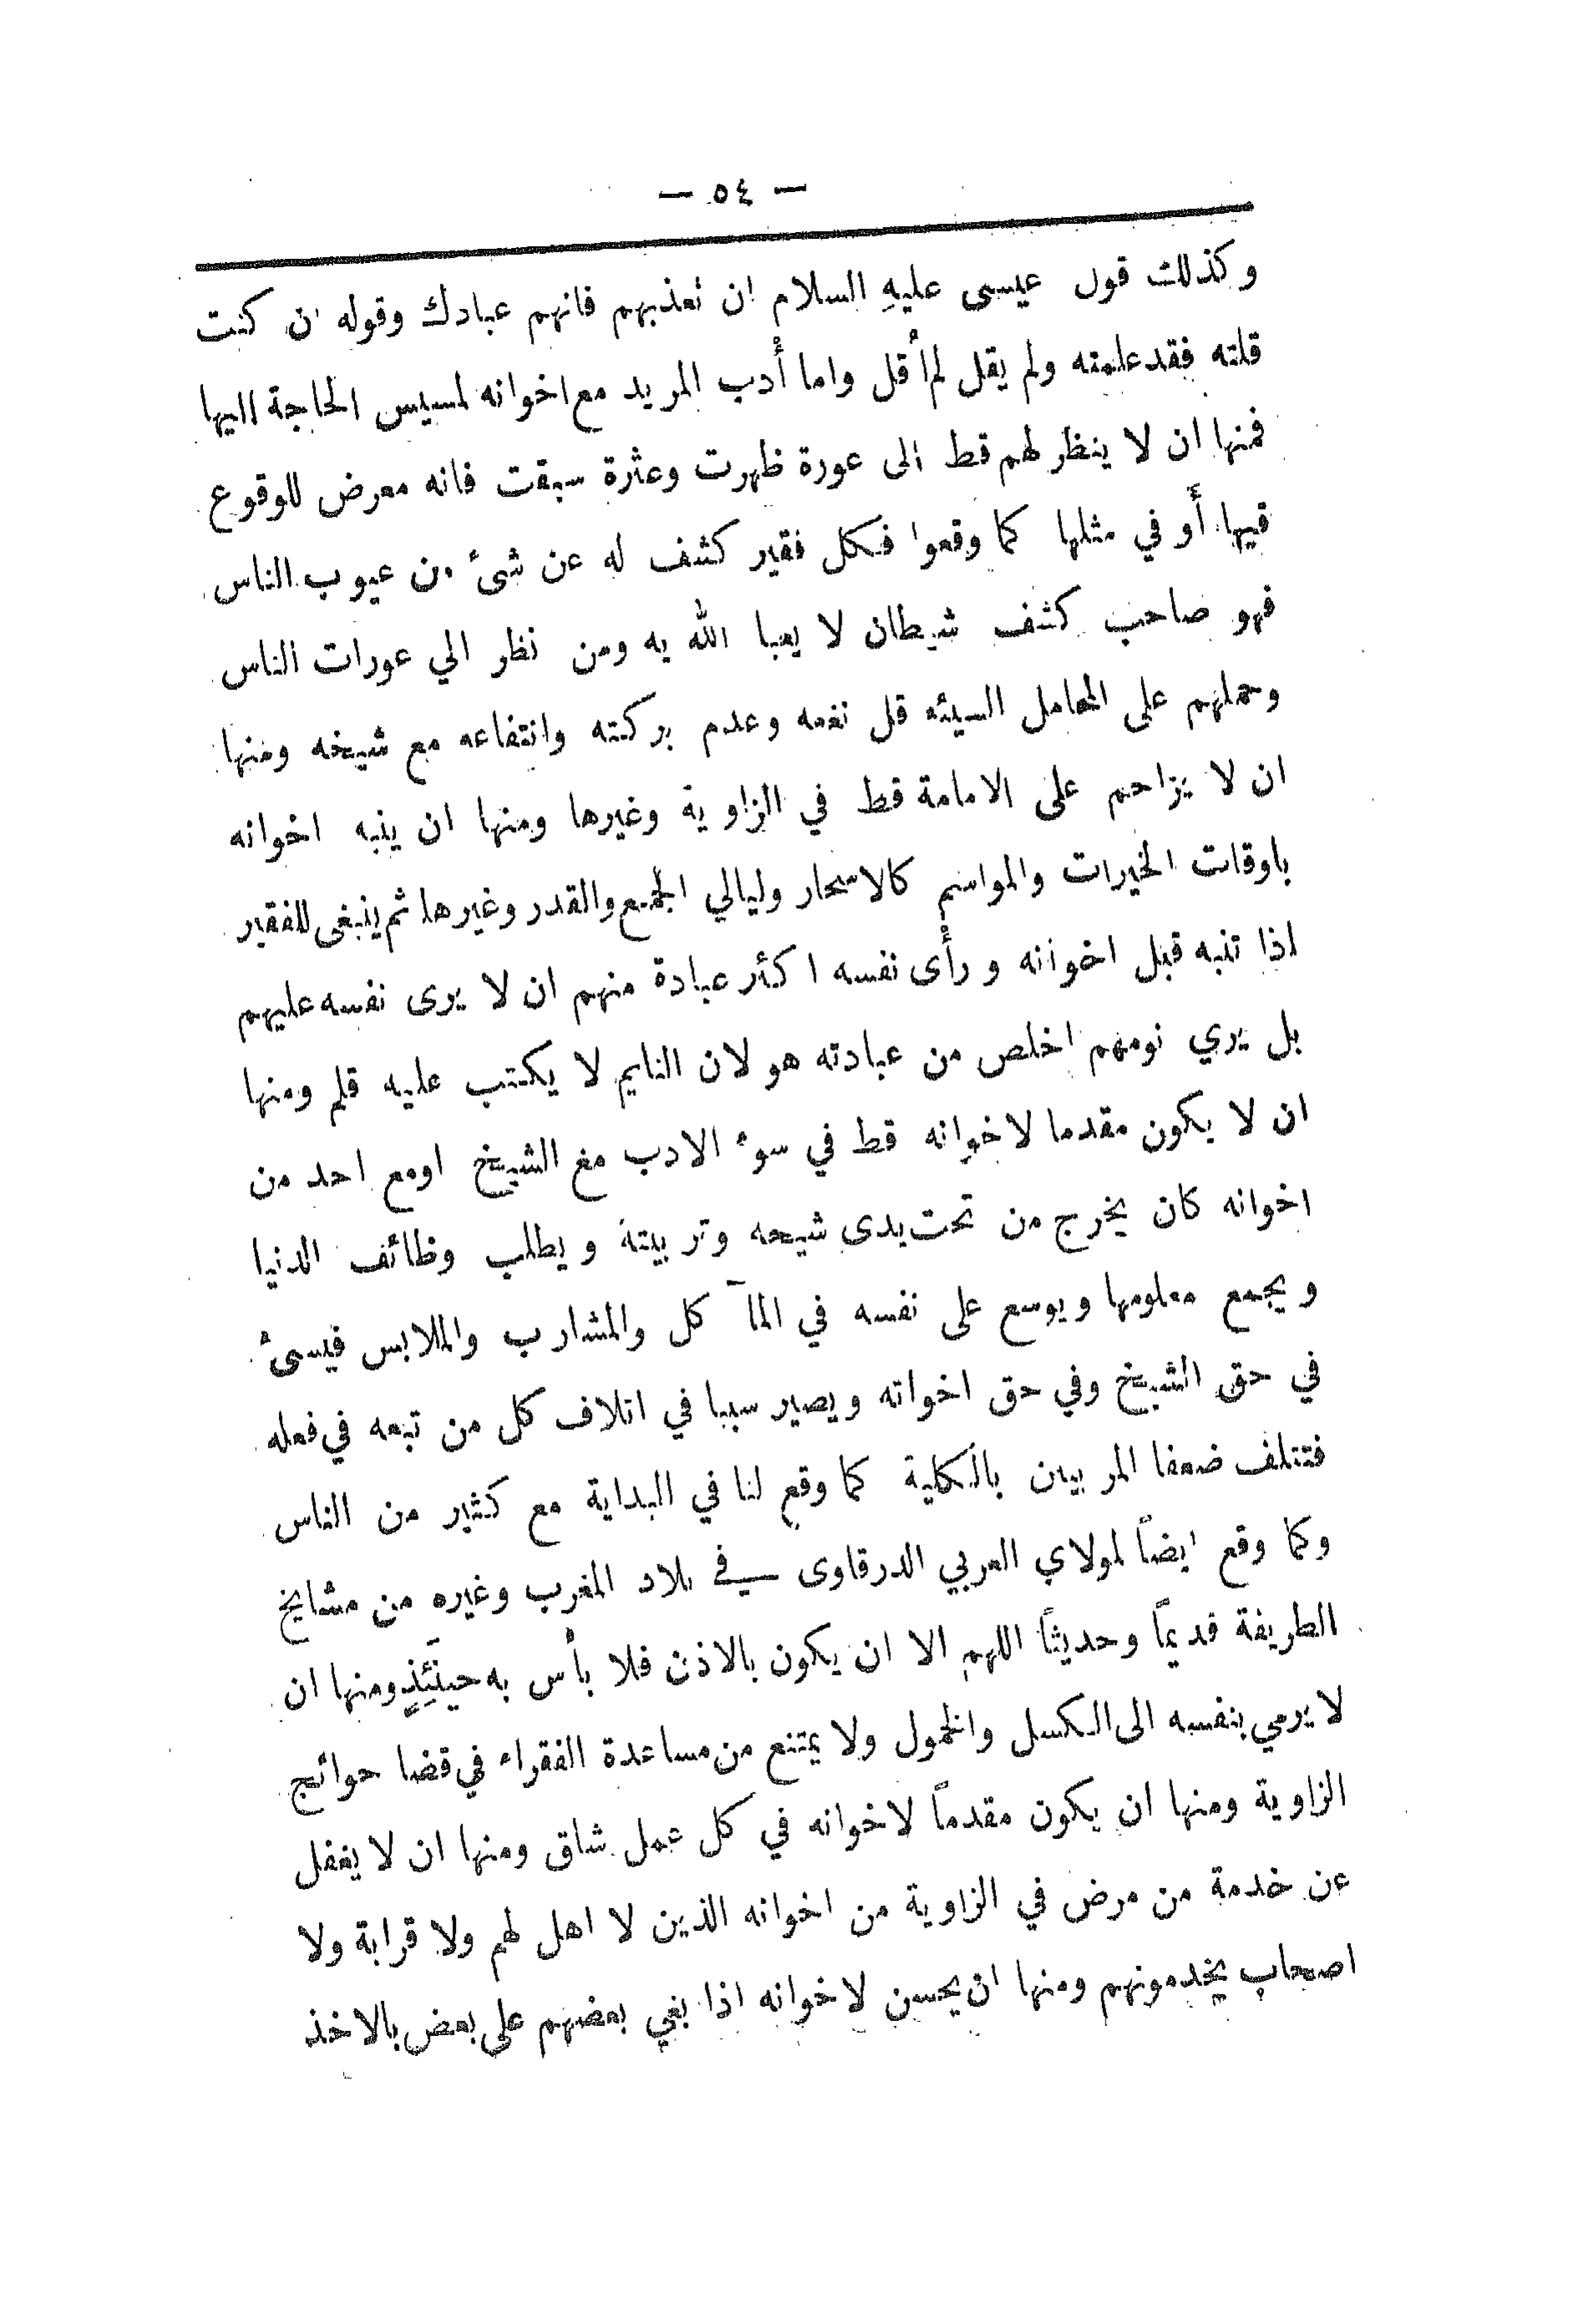 — ٥٤ —
وكذلك قول عيسى عليهِ السلام ان تعذبهم فانهم عبادك وقوله ان كنت
قلته فقد علمته ولم يقل لم أقل واما أدب المريد مع اخوانه لمسيس الحاجة اليها
فمنها ان لا ينظر لهم قط الى عورة ظهرت وعثرة سبقت فانه معرض للوقوع
فيها أو في مثلها كما وقعوا فكل فقير كشف له عن شئ من عيوب الناس
فهو صاحب كشف شيطان لا يعبا الله به ومن نظر الي عورات الناس
وحملهم على المحامل السيئه قل نفعه وعدم بركته وانتفاعه مع شيخه ومنها
ان لا يزاحم على الامامة قط في الزاوية وغيرها ومنها ان ينبه اخوانه
باوقات الخيرات والمواسم كالاسحار وليالي الجمع والقدر وغيرها ثم ينبغى للفقير
اذا تنبه قبل اخوانه ورأى نفسه اكثر عبادة منهم ان لا يرى نفسه عليهم
بل يري نومهم اخلص من عبادته هو لان النايم لا يكتب عليه قلم ومنها
ان لا يكون مقدما لاخوانه قط في سوء الادب مع الشيخ اومع احد من
اخوانه كان يخرج من تحت يدى شيحه وتربيتة ويطلب وظائف الدنيا
ويجمع معلومها ويوسع على نفسه في المآكل والمشارب والملابس فيسئ
في حق الشيخ وفي حق اخواته ويصير سببا في اتلاف كل من تبعه في فعله
فتتلف ضعفا المربيين بالكلية كما وقع لنا في البداية مع كثير من الناس
وكما وقع ايضاً لمولاي العربي الدرقاوى في بلاد المغرب وغيره من مشايخ
الطريقة قديماً وحديثاً اللهم الا ان يكون بالاذن فلا بأس به حينَئِذٍ ومنها ان
لا يرمي بنفسه الى الكسل والخمول ولا يمتنع من مساعدة الفقراء في قضا حوائج
الزاوية ومنها ان يكون مقدماً لاخوانه في كل عمل شاق ومنها ان لا يغفل
عن خدمة من مرض في الزاوية من اخوانه الذين لا اهل لهم ولا قرابة ولا
اصحاب يخدمونهم ومنها ان يحسن لاخوانه اذا بغي بعضهم على بعض بالاخذ